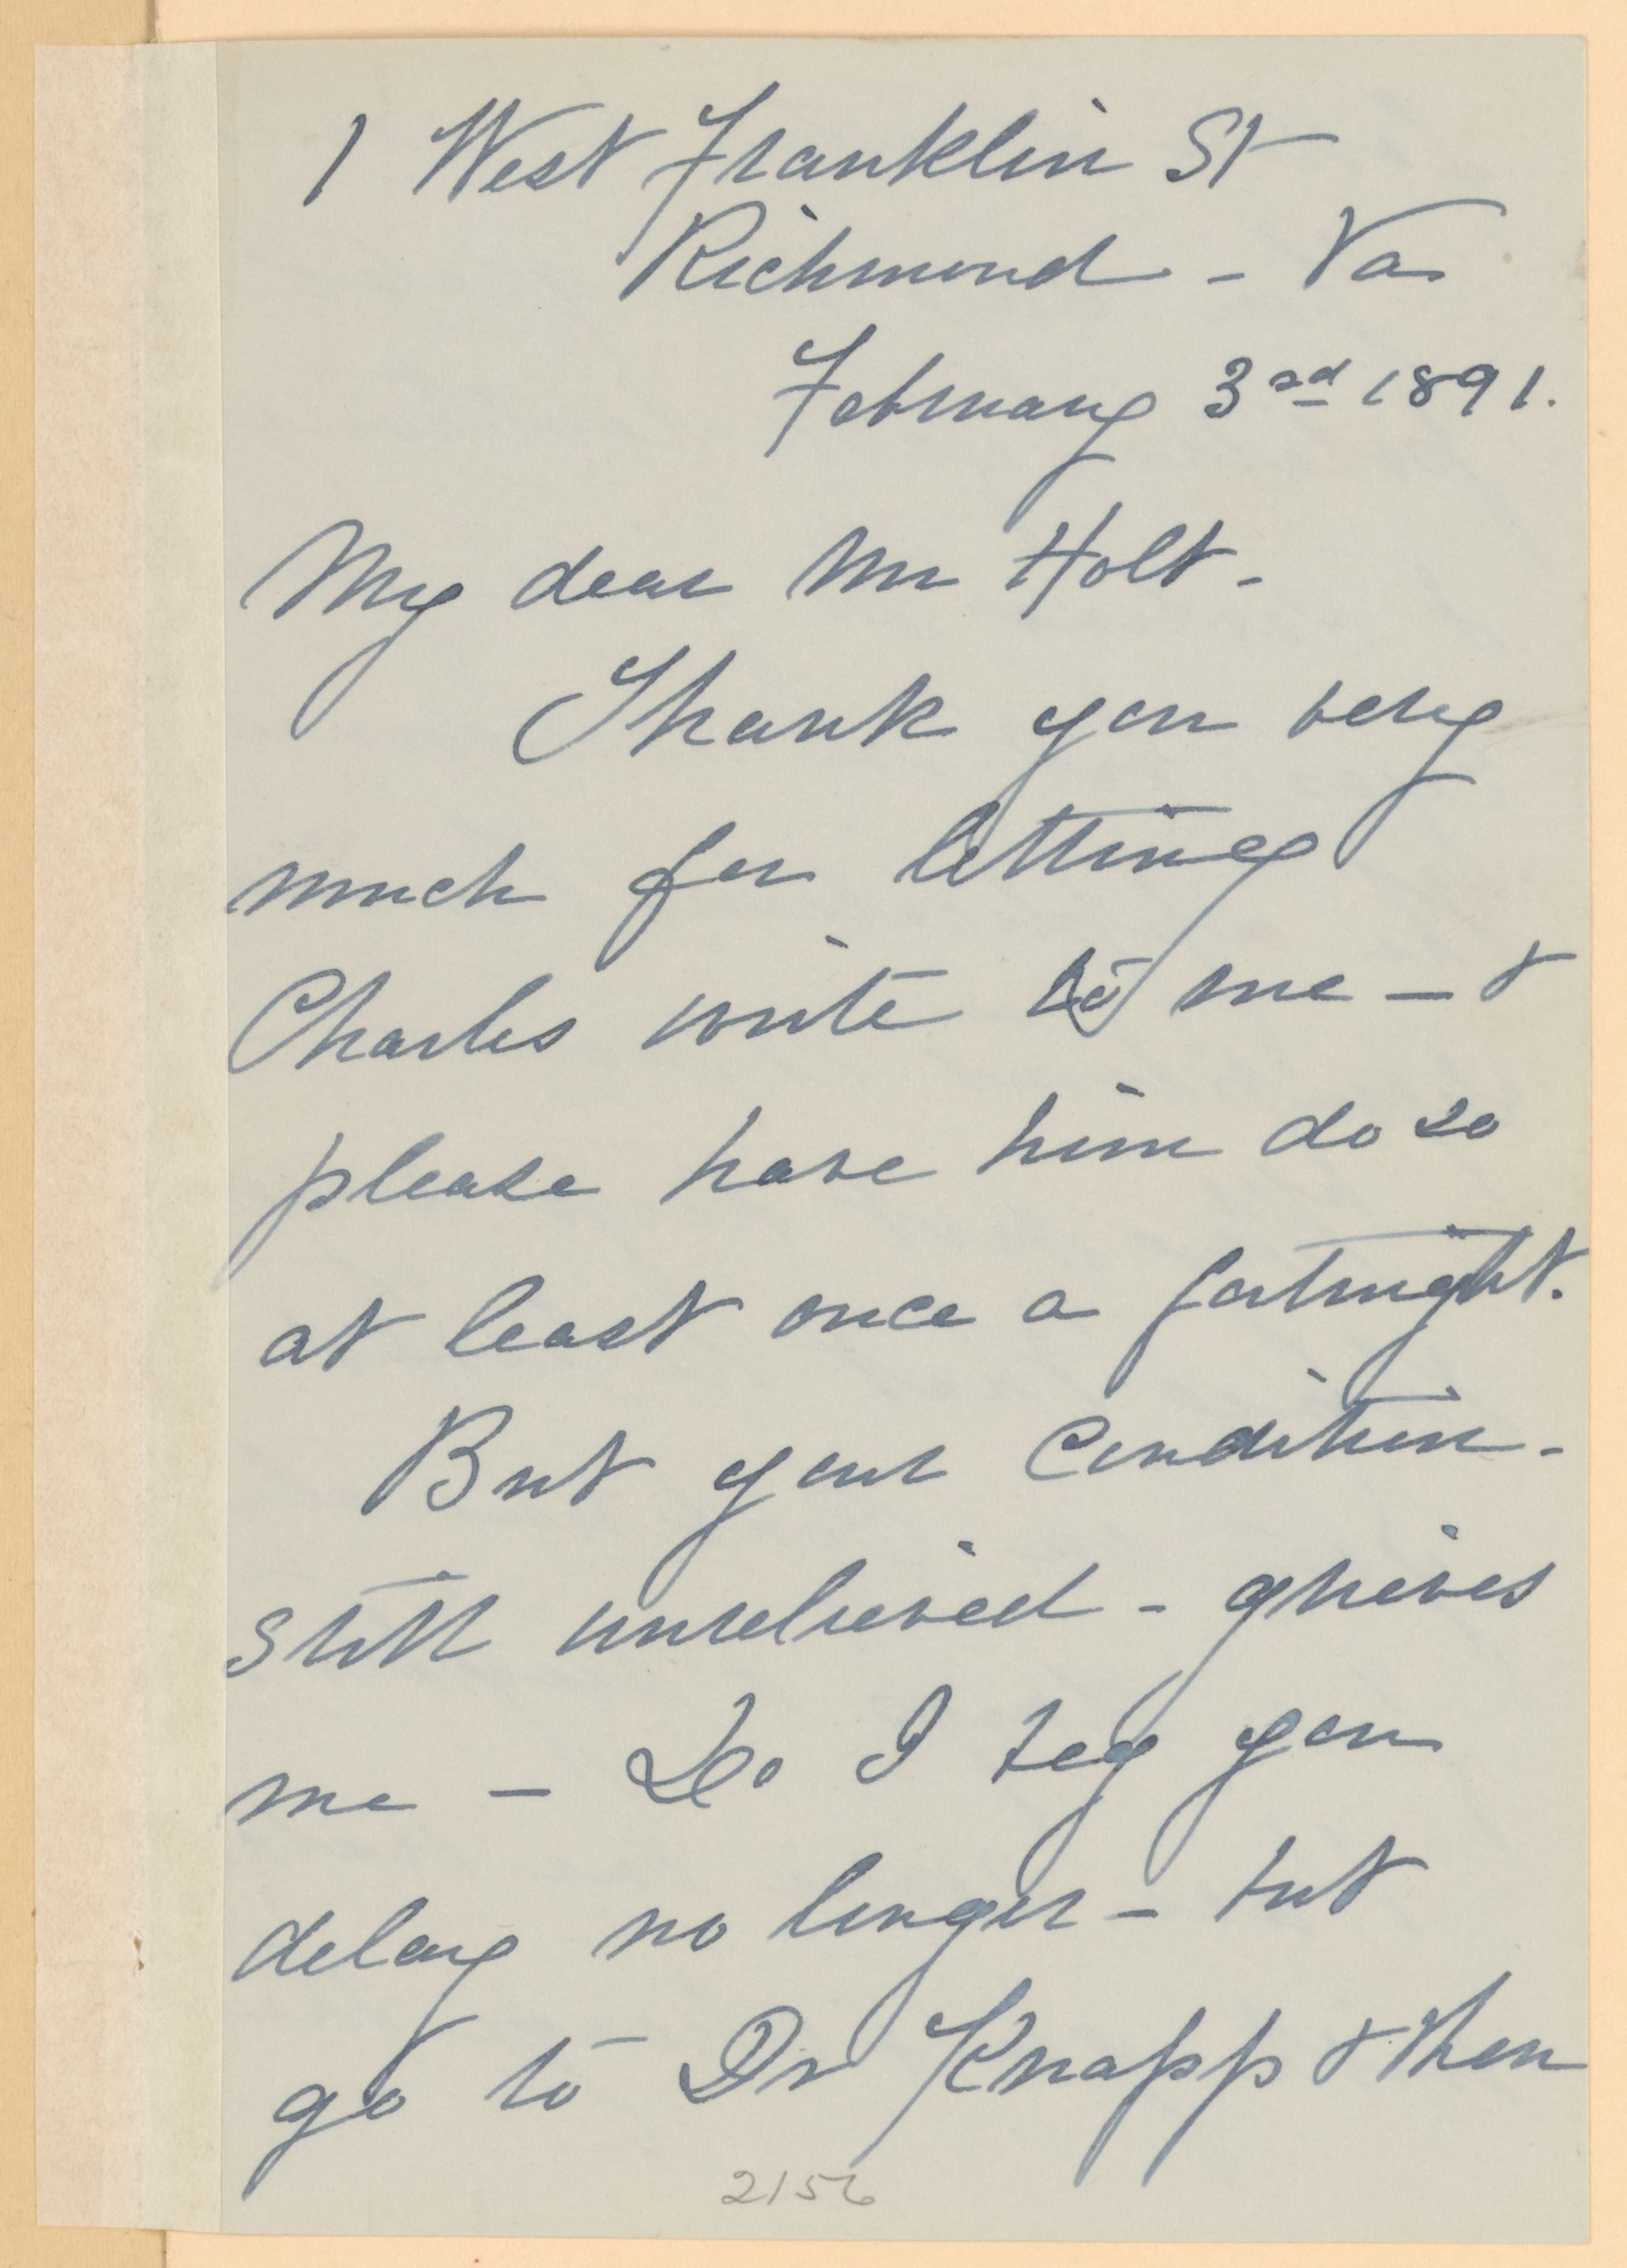 1 West Franklin St
Richmond - Va
February 3rd 1891.
My dear Mr Holt -
Thank you very
much for letting
Charles write to me - &
please have him do so
at least once a fortnight.
But your condition -
still unrelieved - grieves
me - Do I beg you
delay no longer - but
go to Dr Knapp & then
2156